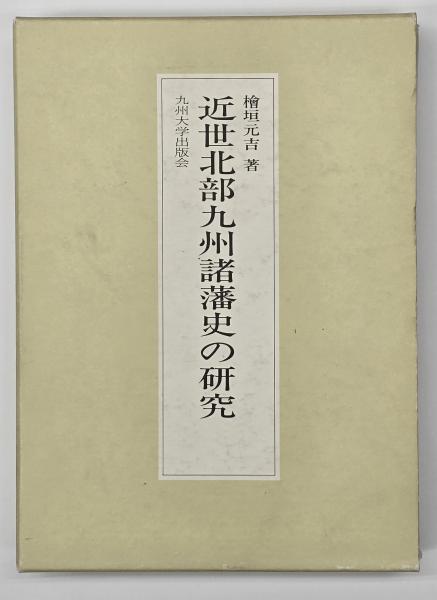 檜垣元吉 著
近世北部九州諸藩史の研究
九州大学出版会